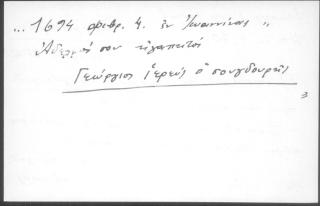 ... 1694 φεβρ. 4. ἐν Ἰωαννίνοις „
Ἀδερφός σου ἠγαπητός
Γεώργιος ἱερεύς ὁ σουγδουρῆς
3